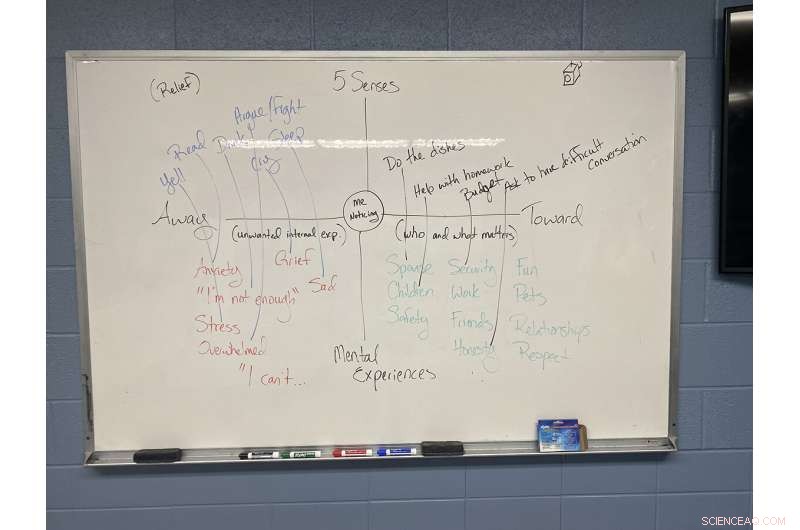 (Relief)
5 Senses
Argue/Fight
Read
Drink
Sleep
Cry
Yell
Do the dishes
Help with homework
Budget
Ask to have difficult
conversation
Away
Me
Noticing
Toward
(unwanted internal exp.)
(who and what matters)
Anxiety
Grief
"I'm not enough"
Sad
Stress
Overwhelmed
"I can't...
Spouse
Security
Fun
Children
Work
Pets
Safety
Friends
Relationships
Honesty
Respect
Mental
Experiences
SCIENCEAQ.COM